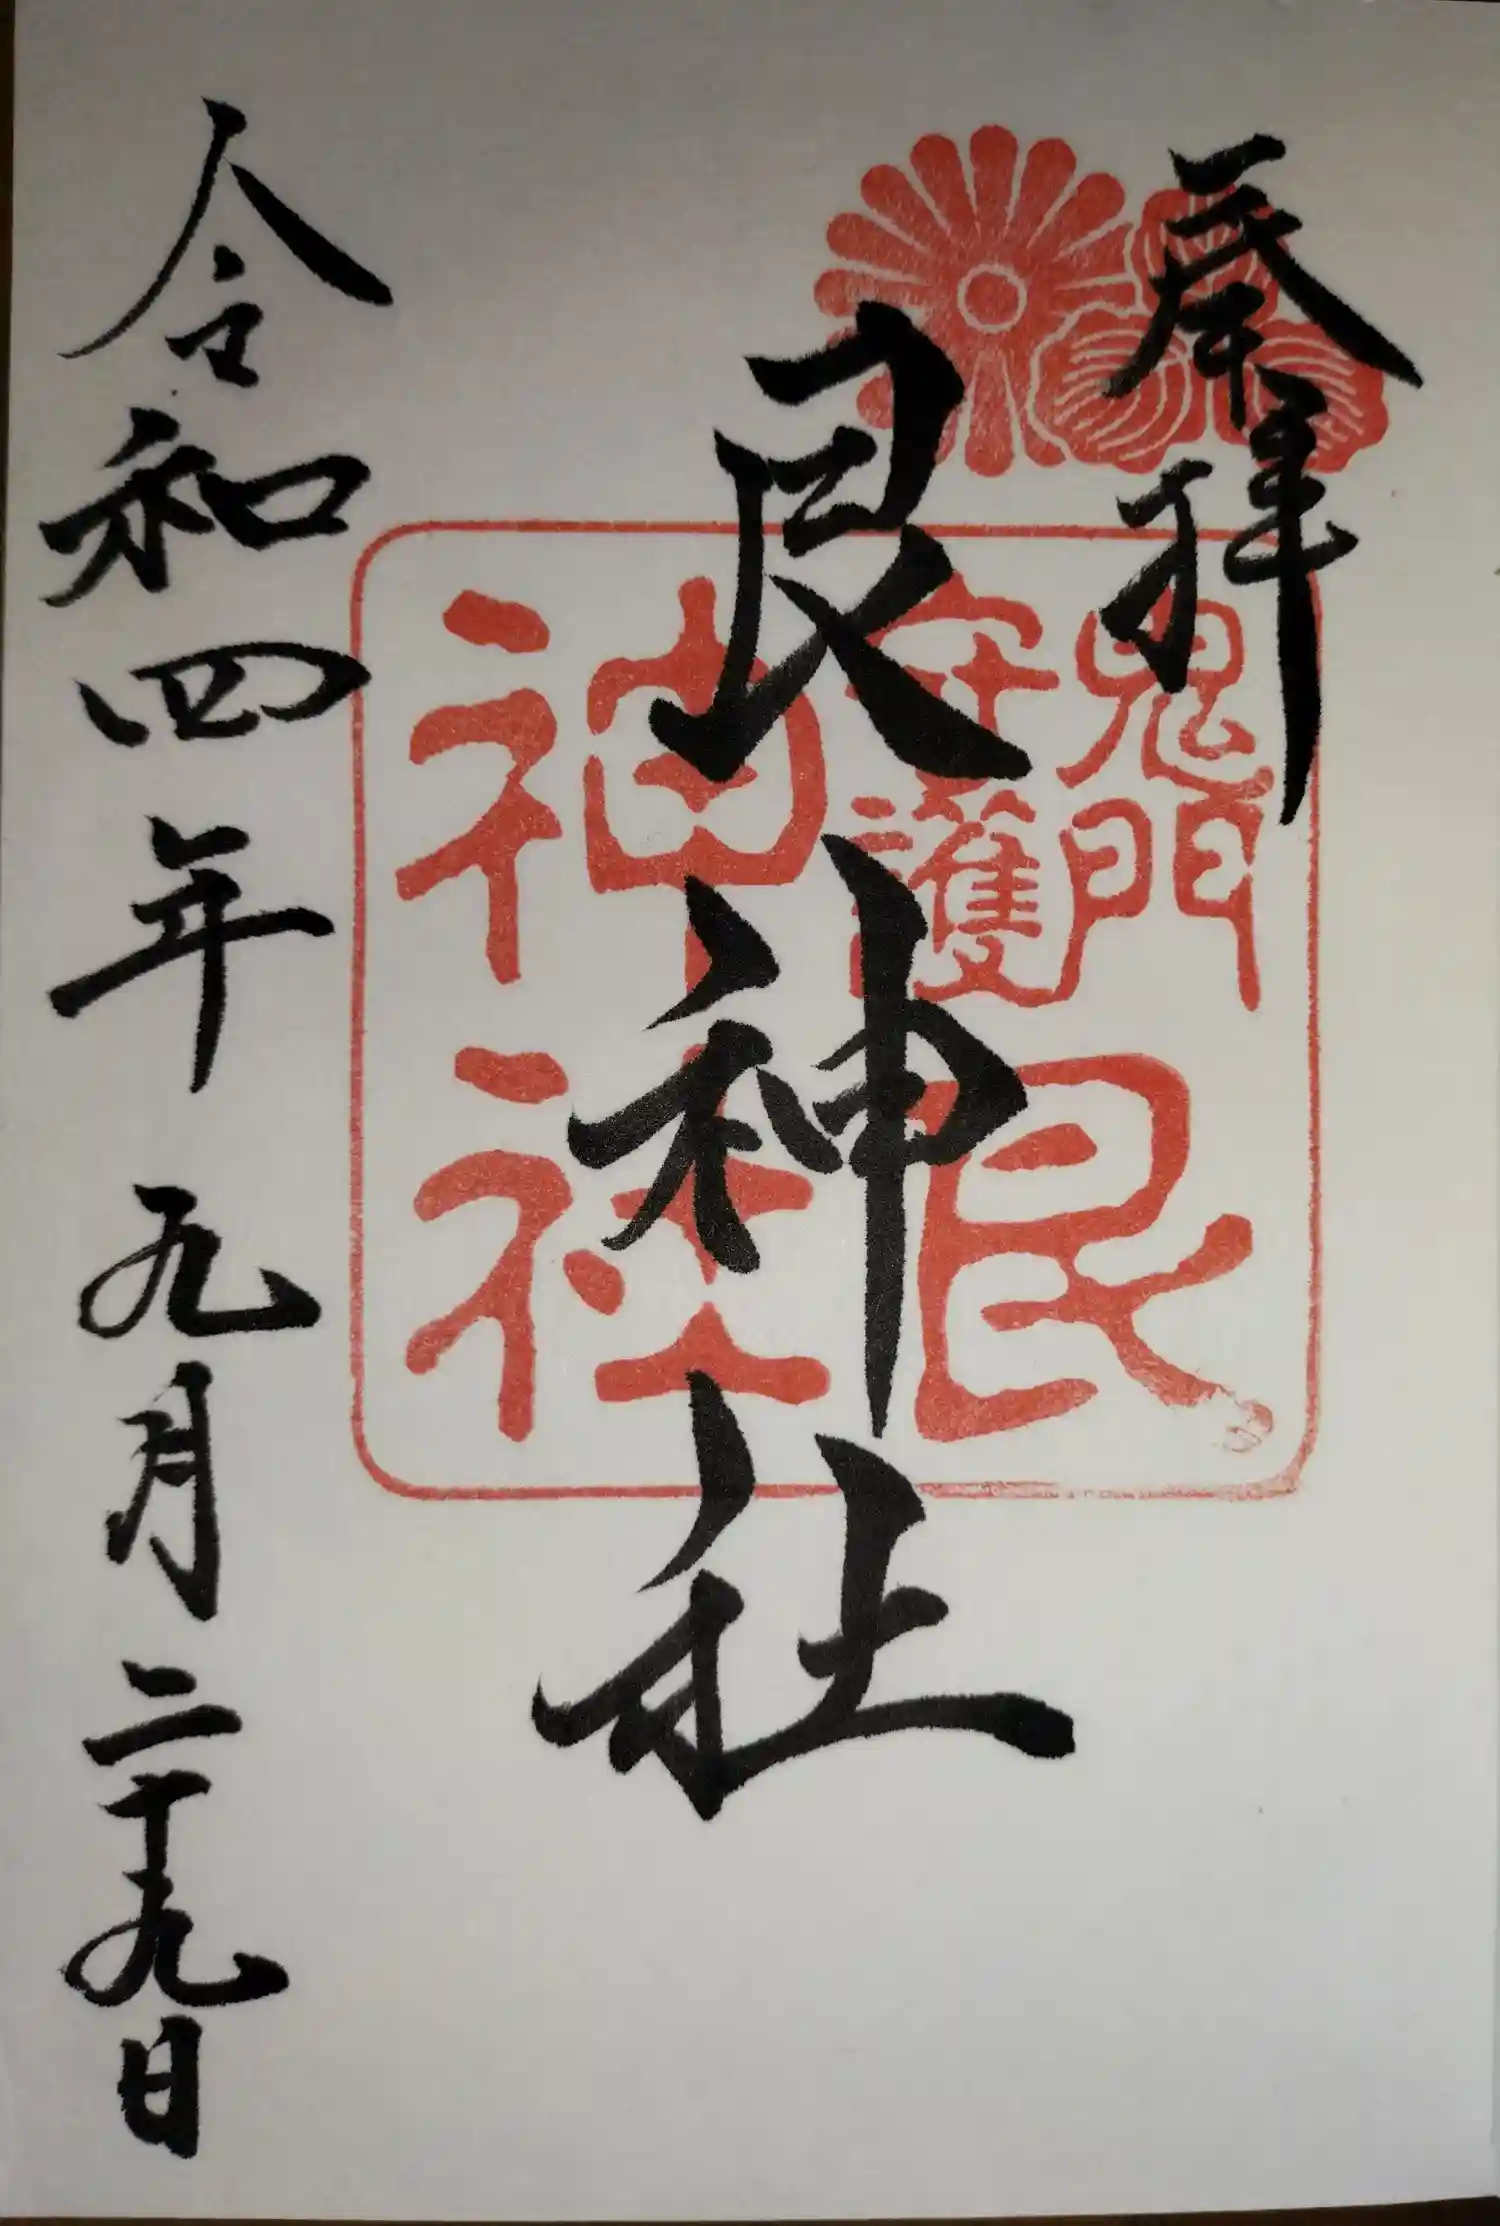 奉拝
鬼門
守護
艮
神社
艮神社
令和四年九月二十九日